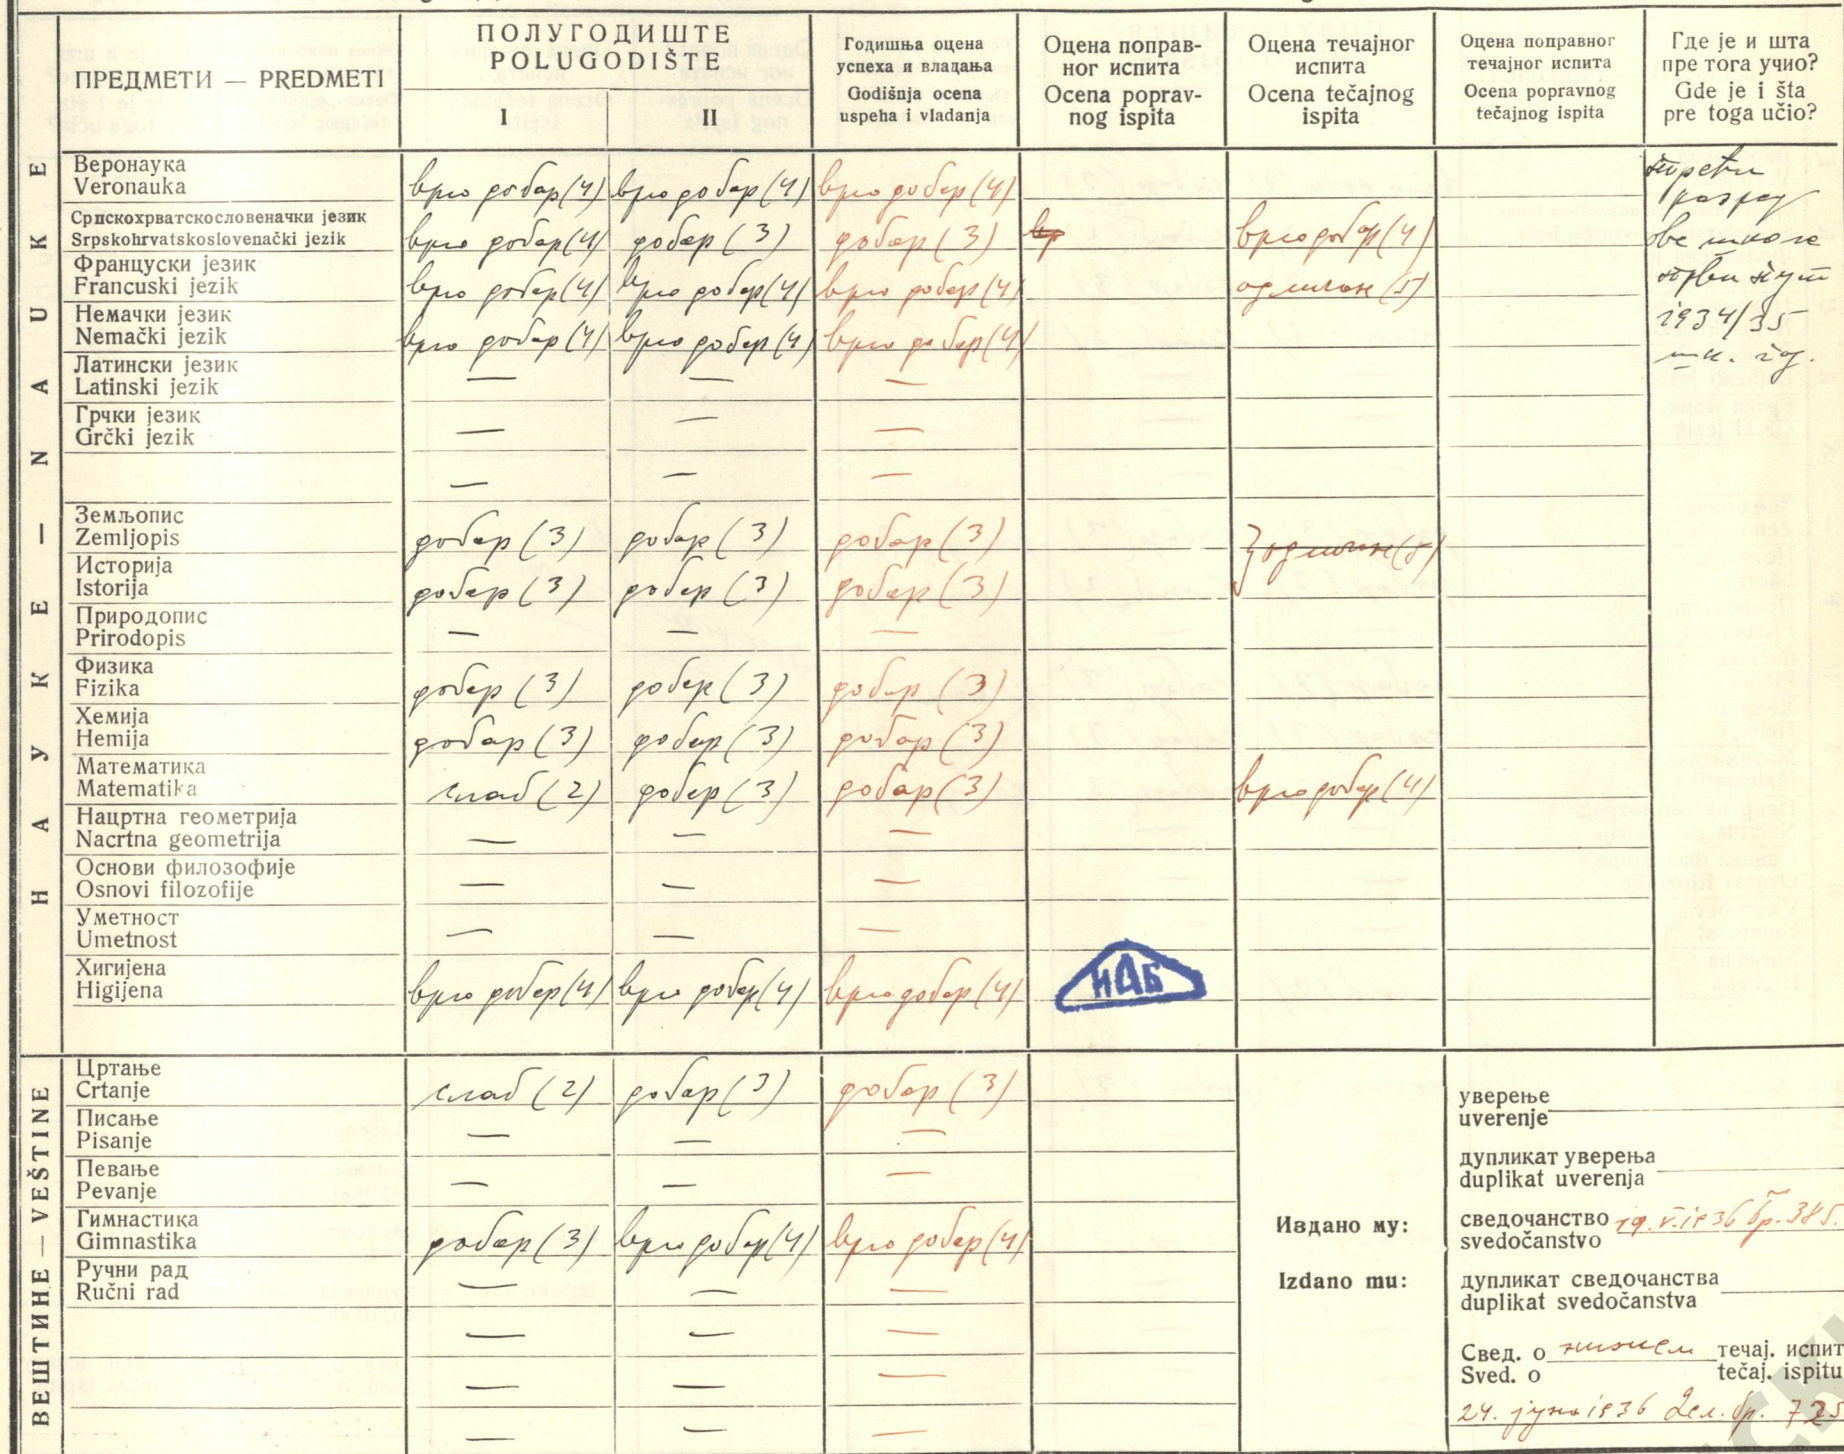 ПРЕДМЕТИ — PREDMETI
ПОЛУГОДИШТЕ
POLUGODIŠTE
I
II
Годишња оцена
успеха и владања
Godišnja ocena
uspeha i vladanja
Оцена поправ-
ног испита
Ocena poprav-
nog ispita
Оцена течајног
испита
Ocena tečajnog
ispita
Оцена поправног
течајног испита
Ocena popravnog
tečajnog ispita
Где је и шта
пре тога учио?
Gde je i šta
pre toga učio?
НАУКЕ — NAUKE
Веронаука
Veronauka
врло добар (4) врло добар (4) врло добар (4)
Српскохрватскословеначки језик
Srpskohrvatskoslovenački jezik
врло добар (4) добар (3) добар (3) врло добар (4)
Француски језик
Francuski jezik
врло добар (4) врло добар (4) врло добар (4) одличан (5)
Немачки језик
Nemački jezik
врло добар (4) врло добар (4) врло добар (4)
трећи
разред
ове школе
први пут
1934/35
шк. год.
Латински језик
Latinski jezik
— — —
Грчки језик
Grčki jezik
— — —
— — —
Земљопис
Zemljopis
добар (3) добар (3) добар (3)
} одличан (5)
Историја
Istorija
добар (3) добар (3) добар (3)
Природопис
Prirodopis
— — —
Физика
Fizika
добар (3) добар (3) добар (3)
Хемија
Hemija
добар (3) добар (3) добар (3)
Математика
Matematika
слаб (2) добар (3) добар (3) врло добар (4)
Нацртна геометрија
Nacrtna geometrija
— — —
Основи филозофије
Osnovi filozofije
— — —
Уметност
Umetnost
— — —
Хигијена
Higijena
врло добар (4) врло добар (4) врло добар (4)
ИАБ
ВЕШТИНЕ — VEŠTINE
Цртање
Crtanje
слаб (2) добар (3) добар (3)
Писање
Pisanje
— — —
Певање
Pevanje
— — —
Гимнастика
Gimnastika
добар (3) врло добар (4) врло добар (4)
Ручни рад
Ručni rad
— — —
— — —
— — —
— —
Издано му:
Izdano mu:
уверење
uverenje
дупликат уверења
duplikat uverenja
сведочанство 19.V.1936 бр. 385.
svedočanstvo
дупликат сведочанства
duplikat svedočanstva
Свед. о нижем течај. испит
Sved. o tečaj. ispitu
24. јуна 1936 Дел. бр. 725